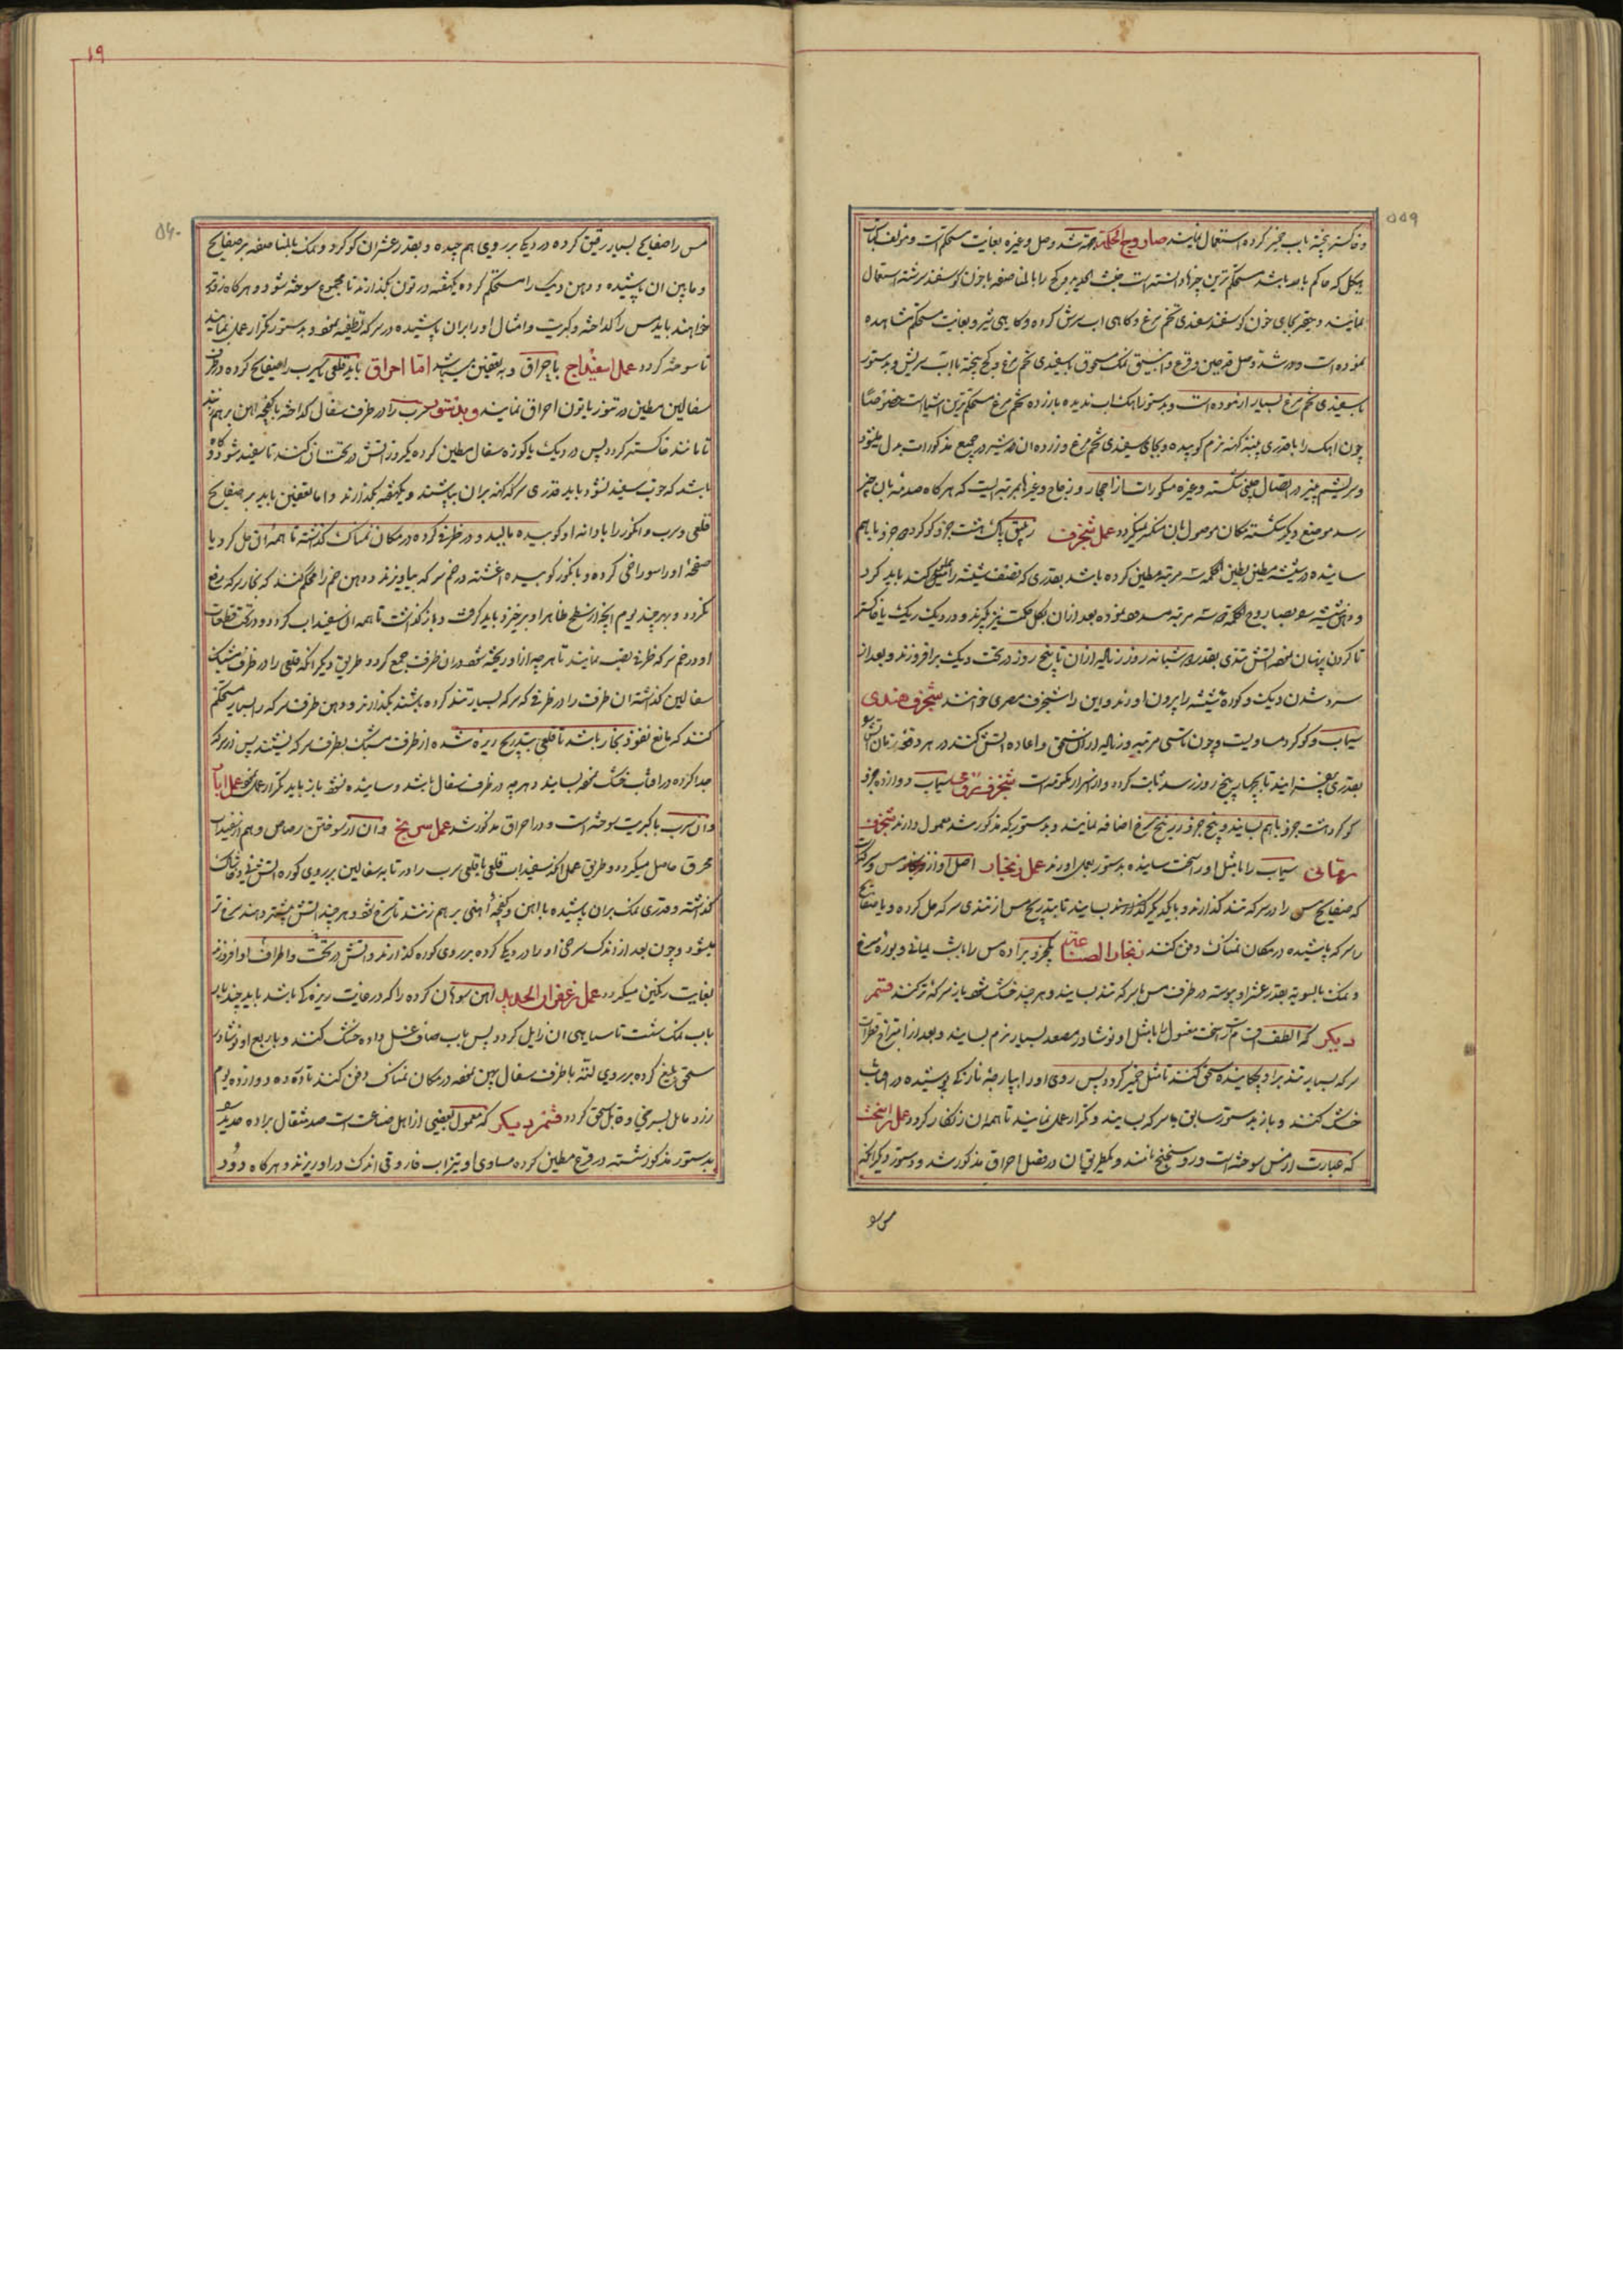 ۵۵۹
و خاکستر پخته باب خمیر کرده استعمال نمایند صاروج الحکمة جهة شد وصل و غیره بغایت مستحکم است و مؤلف کتاب
بیکل که حاکم باصه باشد مستحکم ترین چیزها دانسته است خبث الحدید و کچ را بالمناصفه با خون کوسفند سرشته استعمال
نمایند و حقیر بجای خون کوسفند سفیدی تخم مرغ و کاهی اب سرش کرده و کاهی شیر و بغایت مستحکم مشاهده
نموده است و در شد وصل قرعین و قرع و انبیق نمک مسحوق با سفیدی تخم مرغ و کچ پخته با اب سریش و بدستور
با سفیدی تخم مرغ بسیار ازموده است و بدستور اهک اب ندیده با زرده تخم مرغ مستحکم ترین اشیاست خصوصاً
چون اهک را با قدری پنبه کهنه نرم کوبیده و بجای سفیدی تخم مرغ و زرده ان شیر در جمیع مذکورات بدل میشود
و سریشم پنیر در اتصال چینی شکسته و غیره مکسورات از احجار و زجاج و غیرها بمرتبه ایست که هرکاه صدمه بان چیز
رسد موضع دیکر شکسته مکان موصول بان منکسر نمیکردد عمل شنجرف زیبق پاک هشت جزو کوکرد جزو باهم
ساییده در شیشه مطین بطین الحکمه سه مرتبه مطین کرده باشد بقدری که نصف شیشه را کند باید کرد
و دهن شیشه بصاروج الحکمة سه مرتبه مسدود نموده بعد از ان بکل حکمت نیز بکیرند و در دیک ریک یا خاکستر
تا کردن پنهان نموده اتش تندی بقدر شبانه روز زیاده از ان تا پنج روز در تحت دیک برافروزند و بعد از
سرد شدن دیک و کوره شیشه را بیرون اورند و این را شنجرف مصری خوانند شنجرف هندی
سیماب و کوکرد مساویست و چون تا سی مرتبه و زیاده از ان سحق و اعاده اتش کنند در هر دفعه زمان اتش
بقدری بیفزایند تا بچهار پنج روز رسد ثابت کردد و از اسرار مکتومه است شنجرف سیماب دوازده جزو
کوکرد هشت جزو باهم بسایند و پنج جزو زرنیخ سرخ اضافه نمایند و بدستوریکه مذکور شد معمول دارند شنجرف
رمانی سیماب را با مثل او راسخت ساییده بدستور بعمل اورند عمل زنجار اصل او از مس و سرکه است
که صفایح مس را در سرکه تند کذارند و با یکدیکر بسایند تا بتدریج مس از تندی سرکه حل کرده و یا صفایح
را سرکه پاشیده در مکان نمناک دفن کنند زنجار الصناعة یکجزو براده مس را با شب یمانی و بوره سرخ
و نمک بالسویه بقدر عشر او پیوسته در ظرف مس با سرکه تند بسایند و هر چند خشک شود باز سرکه تر کنند قسم
دیکر که الطف اقسام است راسخت مغسول را با مثل او نوشادر مصعد بسیار نرم بسایند و بعد از امتزاج قطرات
سرکه بسیار تند براو چکانیده سحق کنند تا مثل خمیر کردد پس روی او را بپارچهٔ نازکه پوشیده در افتاب
خشک کنند و باز بدستور سابق با سرکه بسایند و تکرار عمل نمایند تا همه ان زنکار کردد عمل راسخت
که عبارت از مس سوخته است و روسختج نامند و یکطریق ان در فصل احراق مذکور شد و دستور دیکر انکه
مس را
۱۹
۵۶۰
مس را صفایح بسیار رقیق کرده در دیک بر روی هم چیده و بقدر عشر ان کوکرد و نمک بالمناصفه بر صفایح
و مابین ان پاشیده و دهن دیک را مستحکم کرده یکهفته در تون بکذارند تا مجموع سوخته شود و هرکاه زودتر
خواهند باید مس را کداخته و کبریت و امثال او را بران پاشیده در سرکه تطفیه نموده بدستور تکرار عمل نمایند
تا سوخته کردد عمل اسفیداج باحراق و بتعفین میباشد امّا احراق باید قلعی یا سرب را صفایح کرده در ظرف
سفالین مطین در تنور یا تون احراق نمایند و بدستور سرب را در ظرف سفال کداخته با کفچه اهن برهم زنند
تا مانند خاکستر کردد پس در دیک یا کوزه سفال مطین کرده یکروز اتش در تحت ان کنند تا سفید شود و کاه
باشد که خوب سفید نشود باید قدری سرکه کهنه بران بپاشند و یکهفته بکذارند و اما بتعفین باید بر صفایح
قلعی و سرب انکور را با دانه او کوبیده بمالند و در ظرفی کرده در مکان نمناک کذاشته تا همه ان حل کردد یا
صفحهٔ او را سوراخی کرده و با انکور کوبیده اغشته در خم سرکه بیاویزند و دهن خم را محکم کنند که بخار سرکه رفع
نکردد و بهر چند یوم انچه از سطح ظاهر او برخیزد باید کرفت و باز کذاشت تا همه ان سفیداب کردد و در تحت قطعات
او در خم سرکه ظرفی نصب نمایند تا هرچه از او ریخته شود در ان ظرف جمع کردد و طریق دیکر انکه قلعی را در ظرف مشبک
سفالین کذاشته ان ظرف را در ظرفی که سرکه بسیار تند کرده باشند بکذارند و دهن ظرف سرکه را بسیار مستحکم
کنند که مانع نفوذ بخار باشد تا قلعی بتدریج ریزه شده از ظرف مشبک بظرف سرکه نشیند پس از سرکه
جدا کرده در افتاب خشک نموده بسایند و هرچه در ظرف سفال باشد و ساییده نشود باز باید تکرار عمل نمود عمل ابار
و ان سرب با کبریت سوخته است و در احراق مذکور شد عمل سرنج و ان از سوختن رصاص و هم از سفیداب
محرق حاصل میکردد و طریق عمل انکه سفیداب قلعی یا قلعی سرب را در تابه سفالین بر روی کوره اتش و خاشاک
کذاشته و قدری نمک بران پاشیده با اهن و کفچهٔ اهنی برهم زنند تا سرخ شود و هر چند اتش بیشتر دهند سرخ تر
میشود و چون بعد از اندک سرخی او را در دیک کرده بر روی کوره کذارند و اتش در تحت و اطراف او افروزند
بغایت رنکین میکردد عمل زعفران الحدید اهن سوهان کرده را که در غایت ریزه کی باشد باید چند بار
باب نمک شست تا سیاهی ان زایل کردد پس باب صاف غسل داده خشک کنند و با ربع او نوشادر
سحق بلیغ کرده بر روی لته یا ظرف سفال پهن نموده در مکان نمناک دفن کنند تا ده دوازده یوم
زرد مایل بسرخی و قابل سحق کردد قسم دیکر که معمول بعضی از اهل صناعت است صد مثقال براده حدید
بدستور مذکور شسته در قرع مطین کرده مساوی او تیزاب فاروقی اندک اندک در او ریزند و هرکاه دود